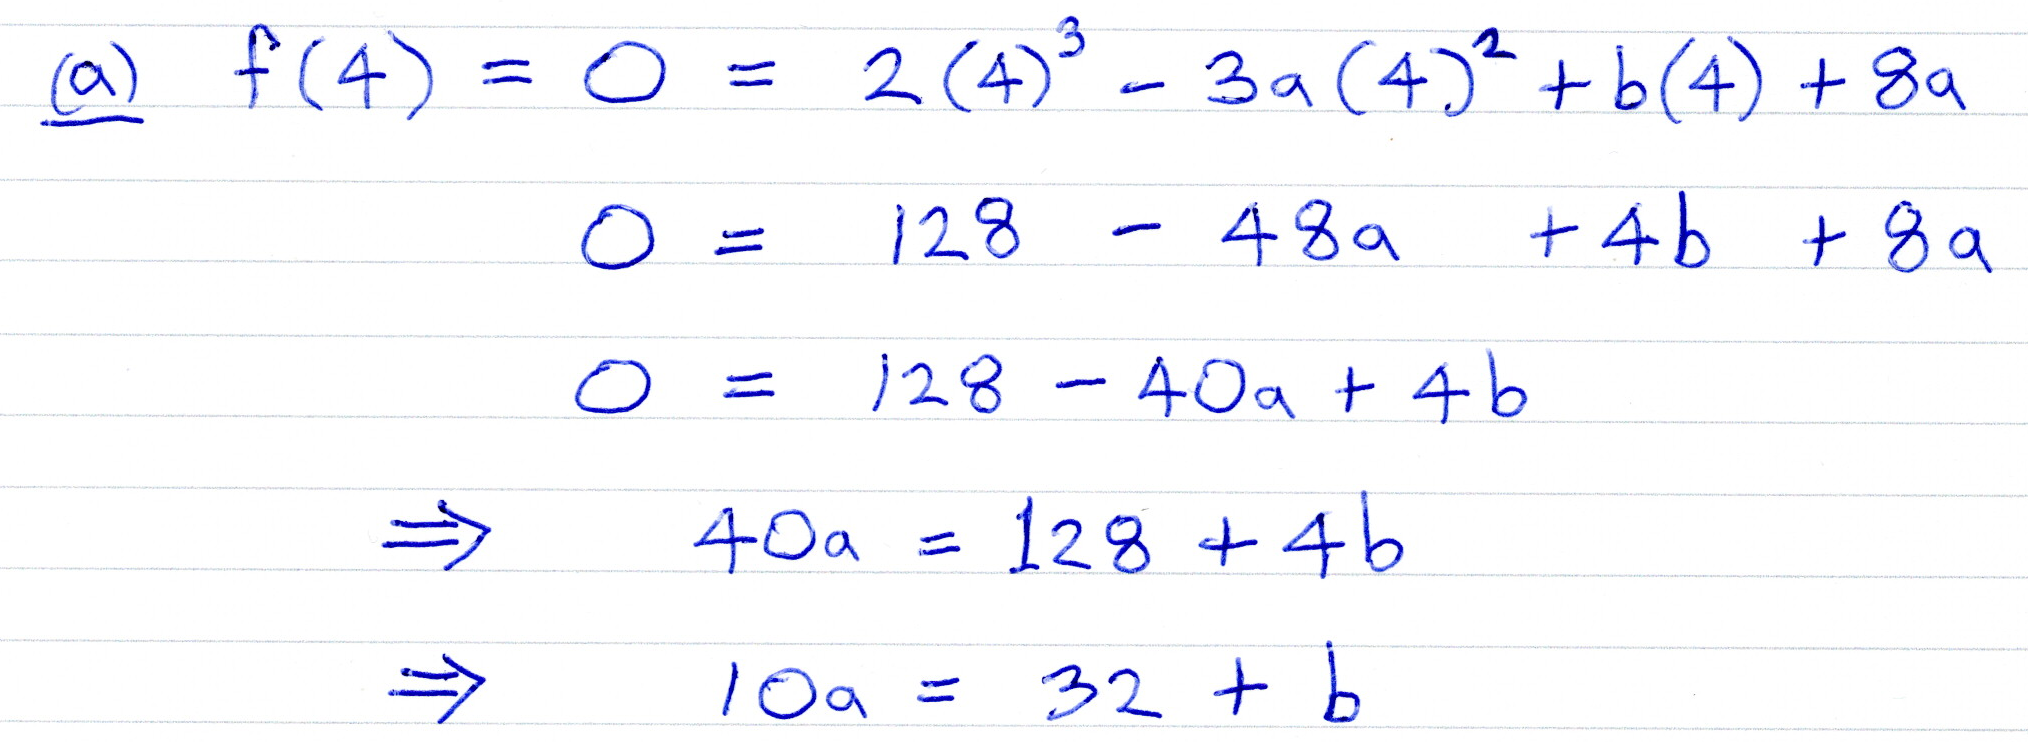 (a) f(4) = 0 = 2(4)³ - 3a(4)² + b(4) + 8a
0 = 128 - 48a + 4b + 8a
0 = 128 - 40a + 4b
⇒ 40a = 128 + 4b
⇒ 10a = 32 + b